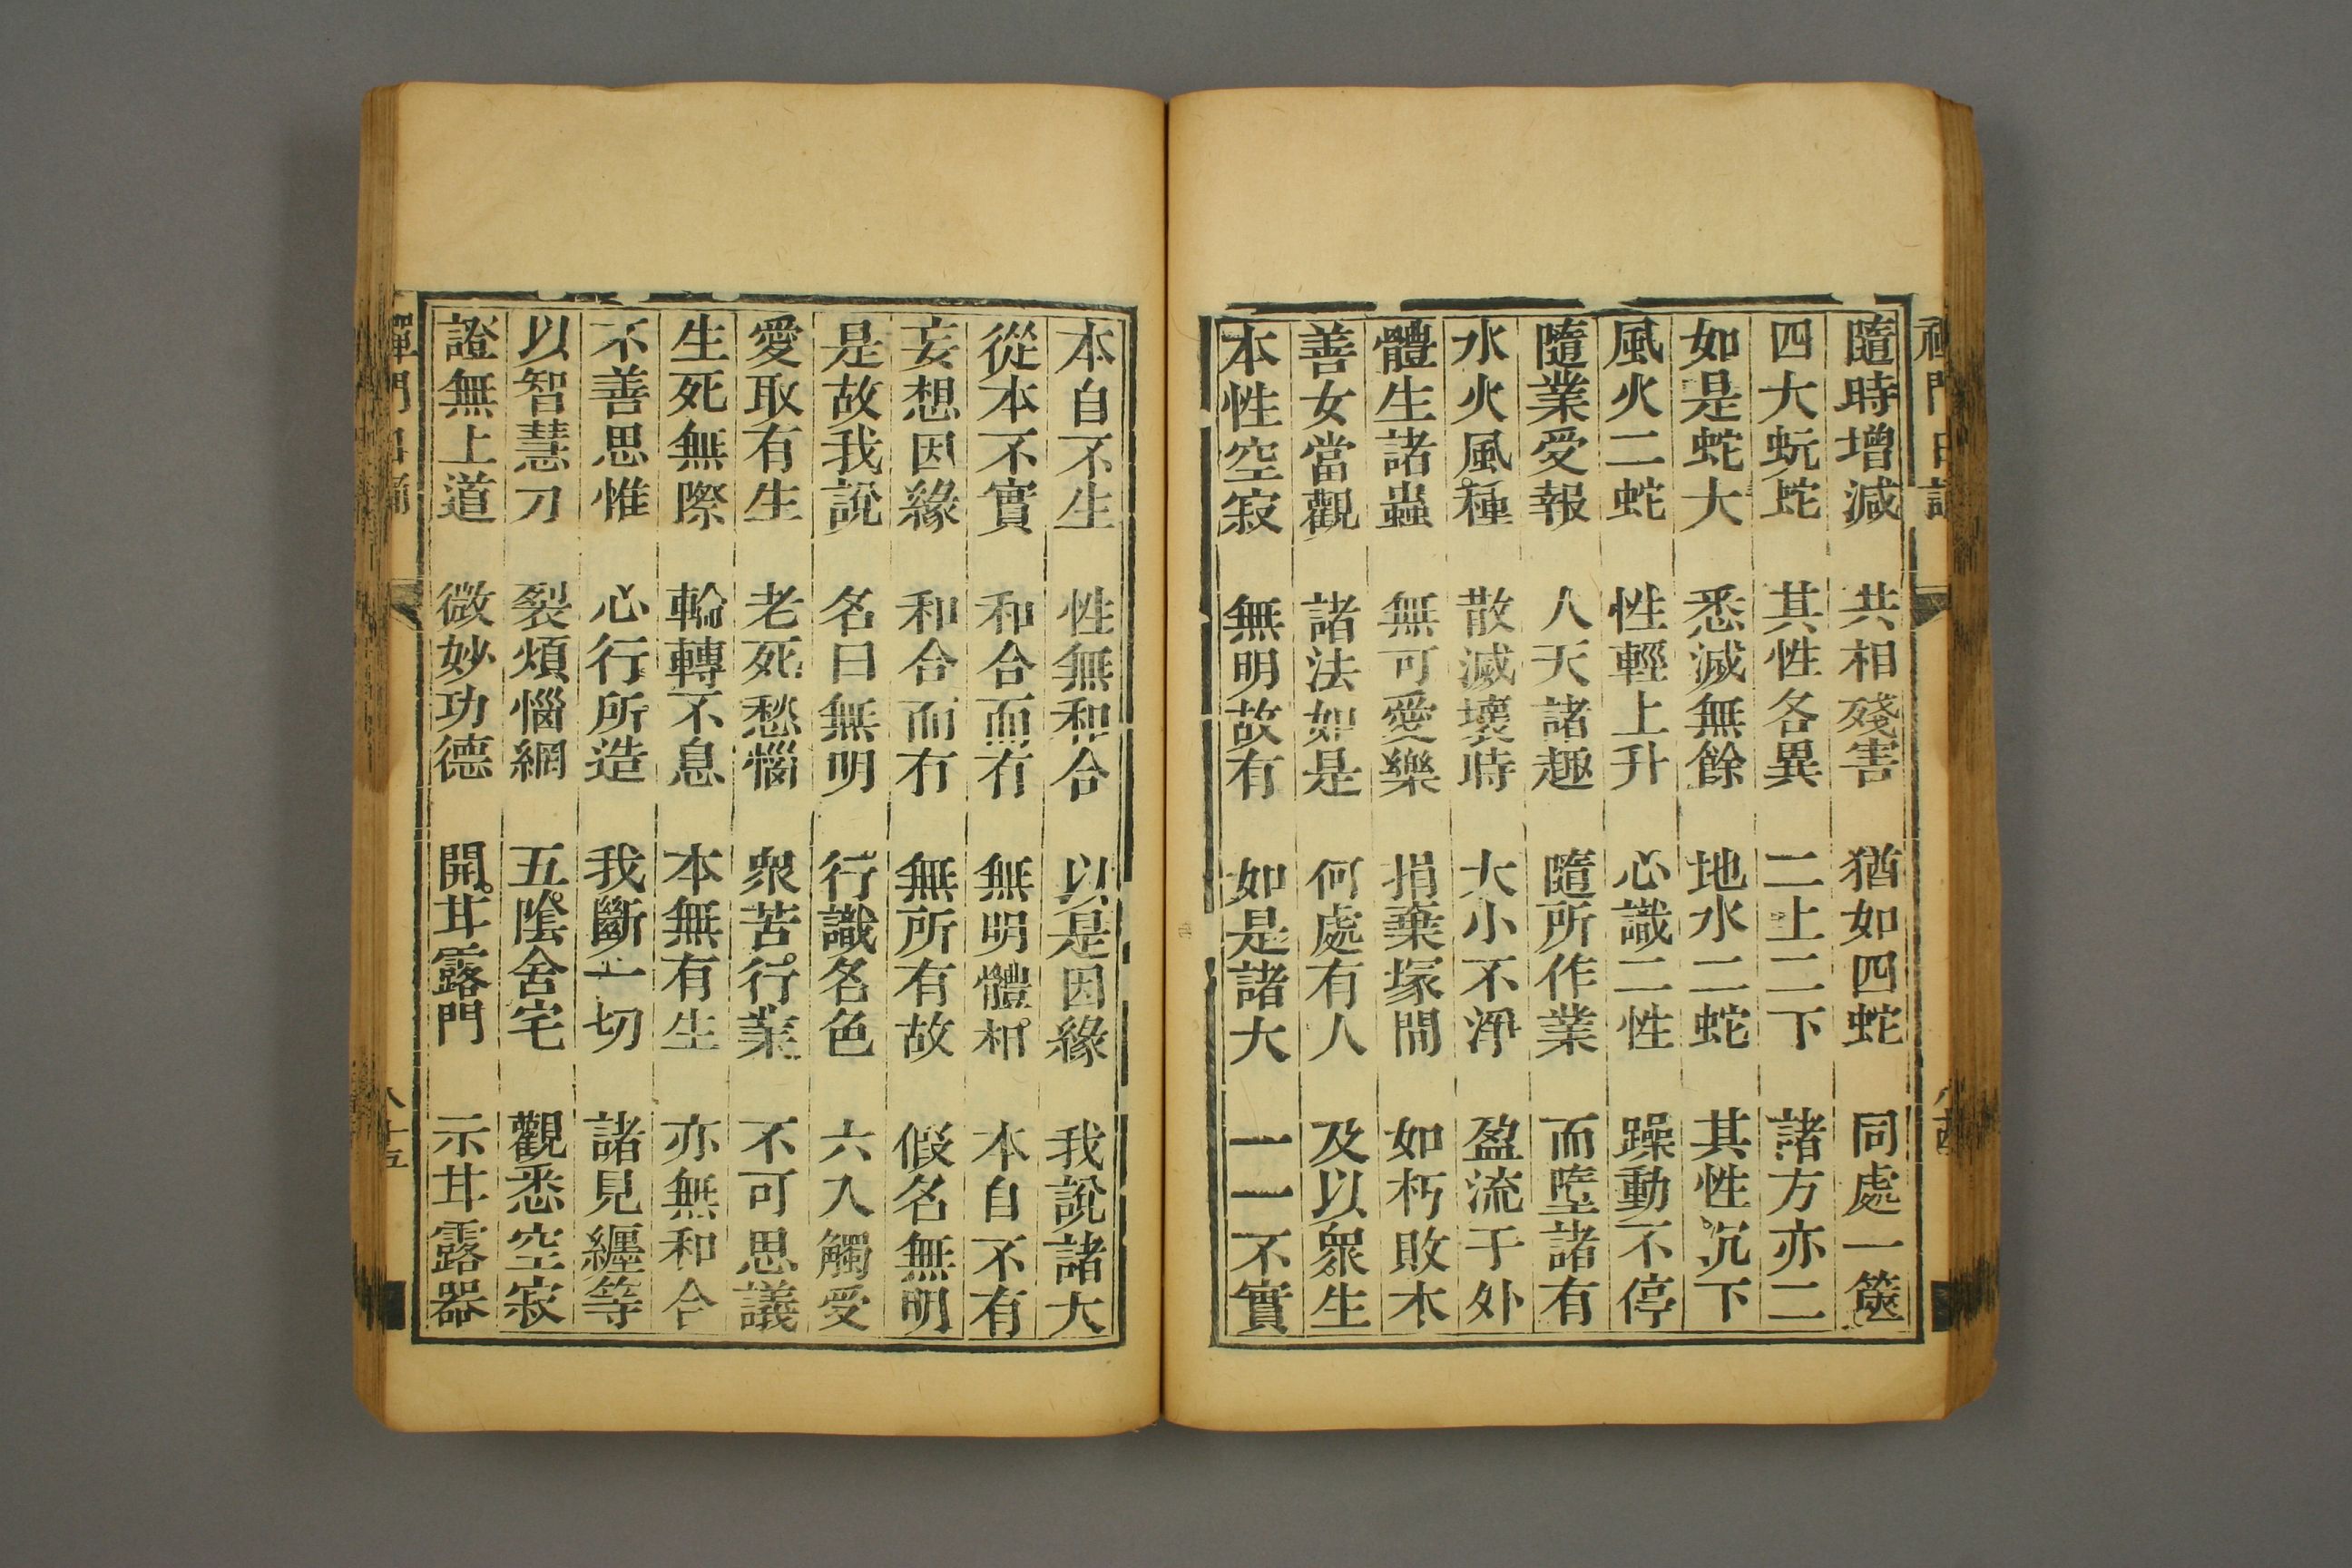 隨時增減　共相殘害　猶如四蛇　同處一篋
四大蚖蛇　其性各異　二上二下　諸方亦二
如是蛇大　悉滅無餘　地水二蛇　其性沉下
風火二蛇　性輕上升　心識二性　躁動不停
隨業愛報　人天諸趣　隨所作業　而墮諸有
水火風種　散滅壞時　大小不淨　盈流于外
體生諸蟲　無可愛樂　捐棄塚間　如朽敗木
善女當觀　諸法如是　何處有人　及以眾生
本性空寂　無明故有　如是諸大　一一不實
本自不生　性無和合　以是因緣　我說諸大
從本不實　和合而有　無明體相　本自不有
妄想因緣　和合而有　無所有故　假名無明
是故我說　名曰無明　行識名色　六入觸受
愛取有生　老死愁惱　眾苦行業　不可思議
生死無際　輪轉不息　本無有生　亦無和合
不善思惟　心行所造　我斷一切　諸見纏等
以智慧刀　裂煩惱網　五陰舍宅　觀悉空寂
證無上道　微妙功德　開甘露門　示甘露器
禪門日誦
八十五